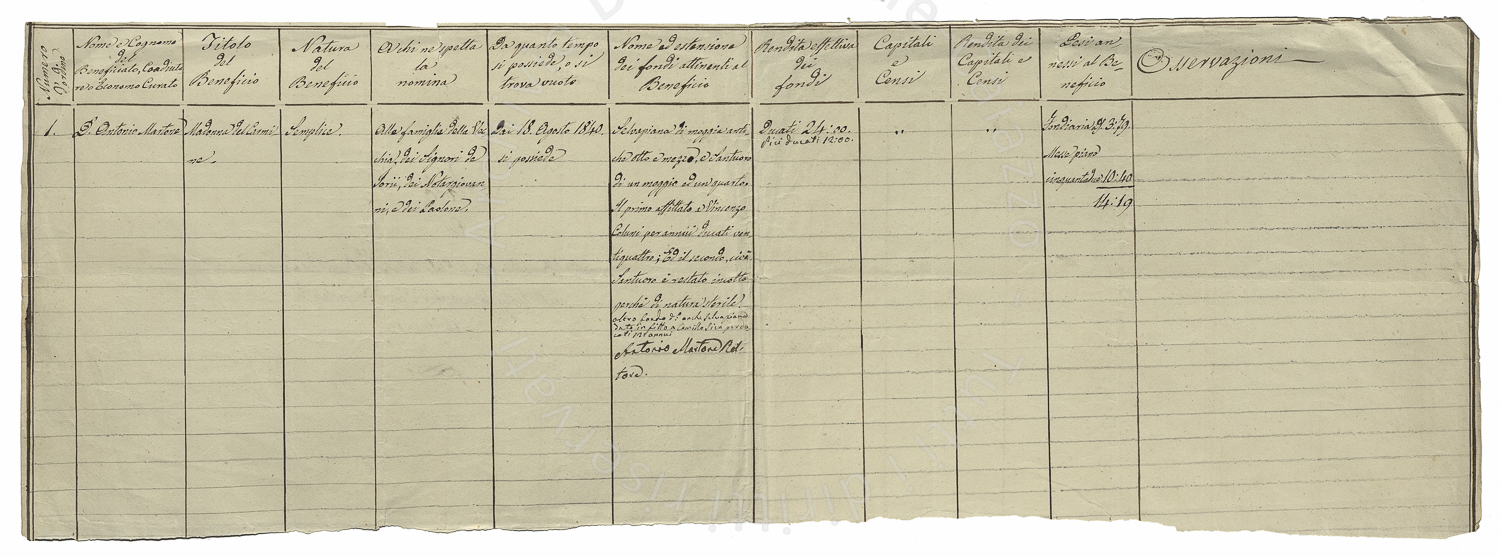 Numero
di
Ordine
Nome e Cognome
del
Beneficiato, Coadiuto
re, o Economo Curato
Titolo
del
Beneficio
Natura
del
Beneficio
A chi ne spetta
la
nomina
Da quanto tempo
si possiede, o si
trova vuoto
Nome ed estensione
dei fondi attinenti al
Beneficio
Rendita effettiva
dei
fondi
Capitali
e
Censi
Rendita dei
Capitali e
Censi
Pesi an
nessi al Be=
neficio
Osservazioni
1.
D. Antonio Martone
Madonna del Carmi
ne.
Semplice.
Alle famiglie della Vec
chia, dei Signori de
Iorii, dei Notargiovan
ni, e dei Pastore.
Dai 18. Agosto 1840.
si possiede
Selvapiana di moggia anti
che otto e mezzo, e Santuoro
di un moggio ed un quarto.
Il primo affittato a Vincenzo
Coluni per annui ducati ven
tiquattro; Ed il secondo, cioè
Santuoro è restato incolto
perchè di natura sterile.
altro fondo di anche Selvapiana
dato in fitto a per du
cati 12 annui
Antonio Martone Ret=
tore.
Ducati 24:00.
Più ducati 12:00.
"
"
Fondiaria D. 3:79
Messe piane
cinquantadue 10:40
14:19
Tutti i diritti riservati